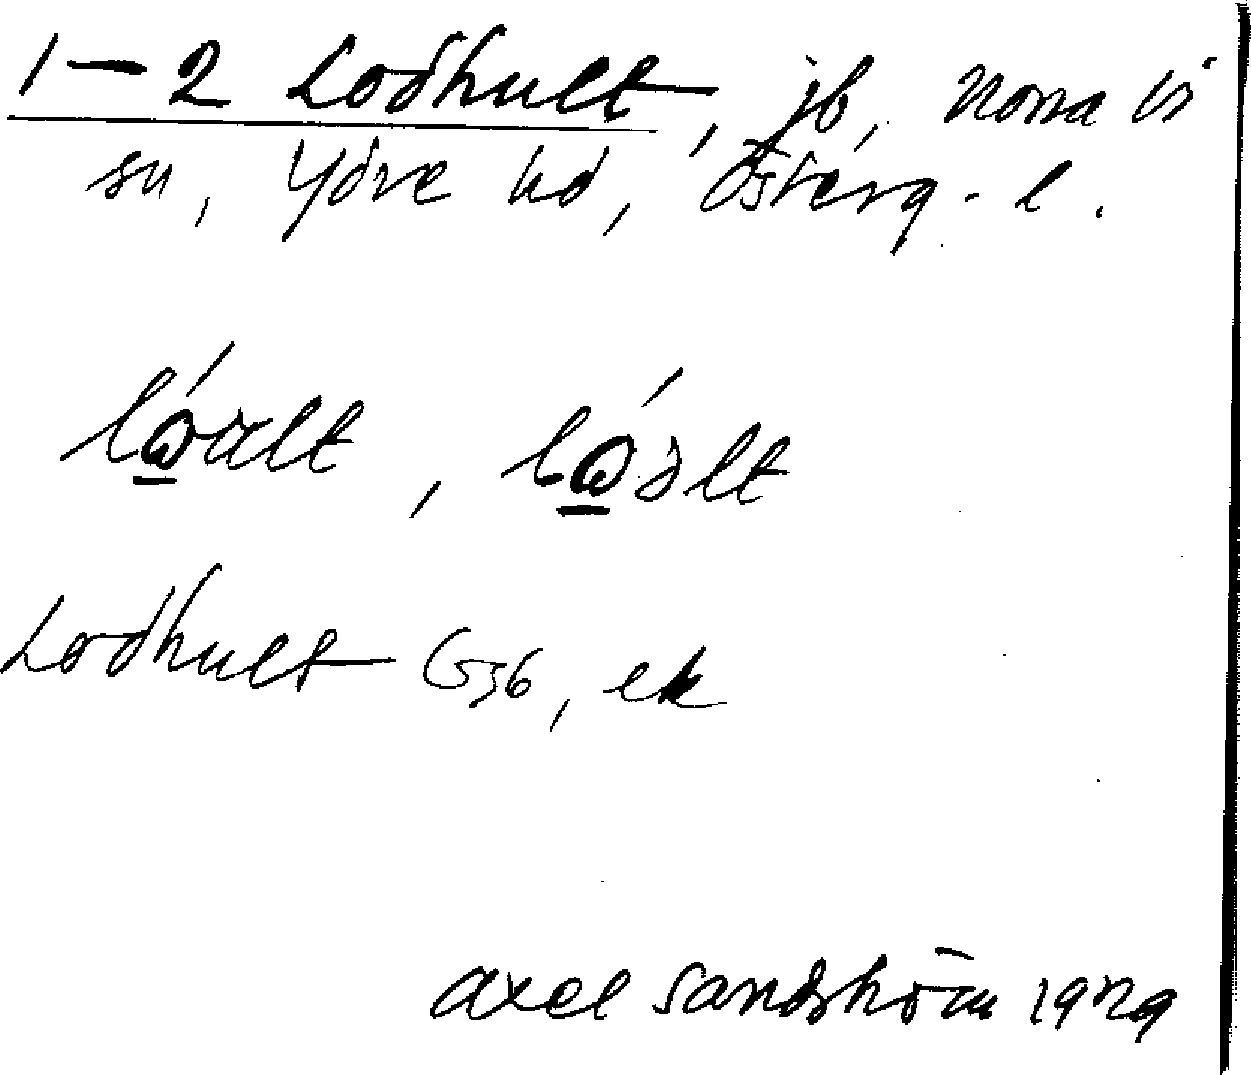 1–2 Lodhult, jb, Norra Vi
sn, Ydre hd, Österg. l.
lώ̲ult, lώ̲əlt
Lodhult G36, ek
Axel Sandström 1929